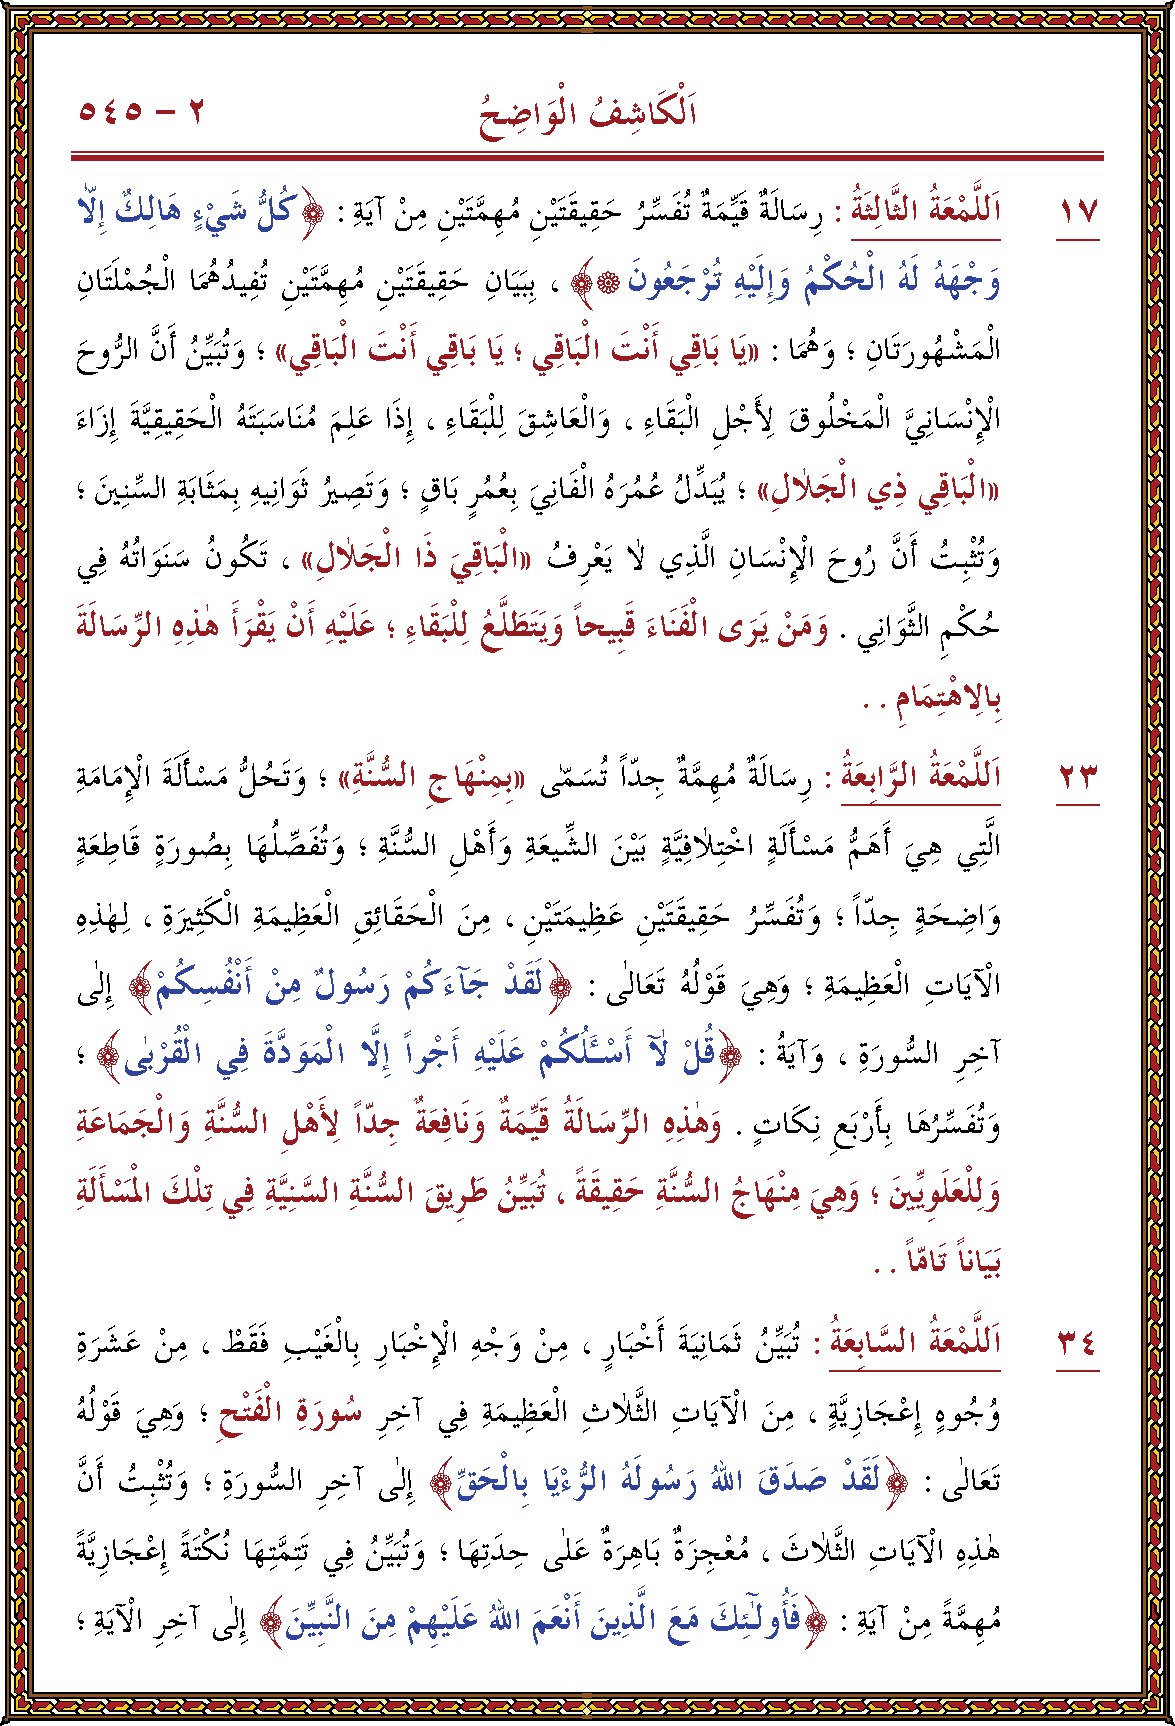 ٢ – ٥٤٥ اَلْكَاشِفُ الْوَاضِحُ
١٧ اَللَّمْعَةُ الثَّالِثَةُ : رِسَالَةٌ قَيِّمَةٌ تُفَسِّرُ حَقِيقَتَيْنِ مُهِمَّتَيْنِ مِنْ آيَةِ : ﴿كُلُّ شَيْءٍ هَالِكٌ إِلَّا
وَجْهَهُ لَهُ الْحُكْمُ وَإِلَيْهِ تُرْجَعُونَ ۞﴾ ، بِبَيَانِ حَقِيقَتَيْنِ مُهِمَّتَيْنِ تُفِيدُهُمَا الْجُمْلَتَانِ
الْمَشْهُورَتَانِ ؛ وَهُمَا : «يَا بَاقِي أَنْتَ الْبَاقِي ؛ يَا بَاقِي أَنْتَ الْبَاقِي» ؛ وَتُبَيِّنُ أَنَّ الرُّوحَ
الْإِنْسَانِيَّ الْمَخْلُوقَ لِأَجْلِ الْبَقَاءِ ، وَالْعَاشِقَ لِلْبَقَاءِ ، إِذَا عَلِمَ مُنَاسَبَتَهُ الْحَقِيقِيَّةَ إِزَاءَ
«الْبَاقِي ذِي الْجَلَالِ» ؛ يُبَدِّلُ عُمُرَهُ الْفَانِيَ بِعُمُرٍ بَاقٍ ؛ وَتَصِيرُ ثَوَانِيهِ بِمَثَابَةِ السِّنِينَ ؛
وَتُثْبِتُ أَنَّ رُوحَ الْإِنْسَانِ الَّذِي لَا يَعْرِفُ «الْبَاقِيَ ذَا الْجَلَالِ» ، تَكُونُ سَنَوَاتُهُ فِي
حُكْمِ الثَّوَانِي . وَمَنْ يَرَى الْفَنَاءَ قَبِيحاً وَيَتَطَلَّعُ لِلْبَقَاءِ ؛ عَلَيْهِ أَنْ يَقْرَأَ هٰذِهِ الرِّسَالَةَ
بِالِاهْتِمَامِ . .
٢٣ اَللَّمْعَةُ الرَّابِعَةُ : رِسَالَةٌ مُهِمَّةٌ جِدّاً تُسَمَّى «بِمِنْهَاجِ السُّنَّةِ» ؛ وَتَحُلُّ مَسْأَلَةَ الْإِمَامَةِ
الَّتِي هِيَ أَهَمُّ مَسْأَلَةٍ اخْتِلَافِيَّةٍ بَيْنَ الشِّيعَةِ وَأَهْلِ السُّنَّةِ ؛ وَتُفَصِّلُهَا بِصُورَةٍ قَاطِعَةٍ
وَاضِحَةٍ جِدّاً ؛ وَتُفَسِّرُ حَقِيقَتَيْنِ عَظِيمَتَيْنِ ، مِنَ الْحَقَائِقِ الْعَظِيمَةِ الْكَثِيرَةِ ، لِهٰذِهِ
الْآيَاتِ الْعَظِيمَةِ ؛ وَهِيَ قَوْلُهُ تَعَالٰى : ﴿لَقَدْ جَآءَكُمْ رَسُولٌ مِنْ أَنْفُسِكُمْ﴾ إِلٰى
آخِرِ السُّورَةِ ، وَآيَةُ : ﴿قُلْ لَآ أَسْـَٔلُكُمْ عَلَيْهِ أَجْراً إِلَّا الْمَوَدَّةَ فِي الْقُرْبٰى﴾ ؛
وَتُفَسِّرُهَا بِأَرْبَعِ نِكَاتٍ . وَهٰذِهِ الرِّسَالَةُ قَيِّمَةٌ وَنَافِعَةٌ جِدّاً لِأَهْلِ السُّنَّةِ وَالْجَمَاعَةِ
وَلِلْعَلَوِيِّينَ ؛ وَهِيَ مِنْهَاجُ السُّنَّةِ حَقِيقَةً ، تُبَيِّنُ طَرِيقَ السُّنَّةِ السَّنِيَّةِ فِي تِلْكَ الْمَسْأَلَةِ
بَيَاناً تَامّاً . .
٣٤ اَللَّمْعَةُ السَّابِعَةُ : تُبَيِّنُ ثَمَانِيَةَ أَخْبَارٍ ، مِنْ وَجْهِ الْإِخْبَارِ بِالْغَيْبِ فَقَطْ ، مِنْ عَشَرَةِ
وُجُوهٍ إِعْجَازِيَّةٍ ، مِنَ الْآيَاتِ الثَّلَاثِ الْعَظِيمَةِ فِي آخِرِ سُورَةِ الْفَتْحِ ؛ وَهِيَ قَوْلُهُ
تَعَالٰى : ﴿لَقَدْ صَدَقَ اللهُ رَسُولَهُ الرُّءْيَا بِالْحَقِّ﴾ إِلٰى آخِرِ السُّورَةِ ؛ وَتُثْبِتُ أَنَّ
هٰذِهِ الْآيَاتِ الثَّلَاثَ ، مُعْجِزَةٌ بَاهِرَةٌ عَلٰى حِدَتِهَا ؛ وَتُبَيِّنُ فِي تَتِمَّتِهَا نُكْتَةً إِعْجَازِيَّةً
مُهِمَّةً مِنْ آيَةِ : ﴿فَأُولٰٓئِكَ مَعَ الَّذِينَ أَنْعَمَ اللهُ عَلَيْهِمْ مِنَ النَّبِيِّنَ﴾ إِلٰى آخِرِ الْآيَةِ ؛